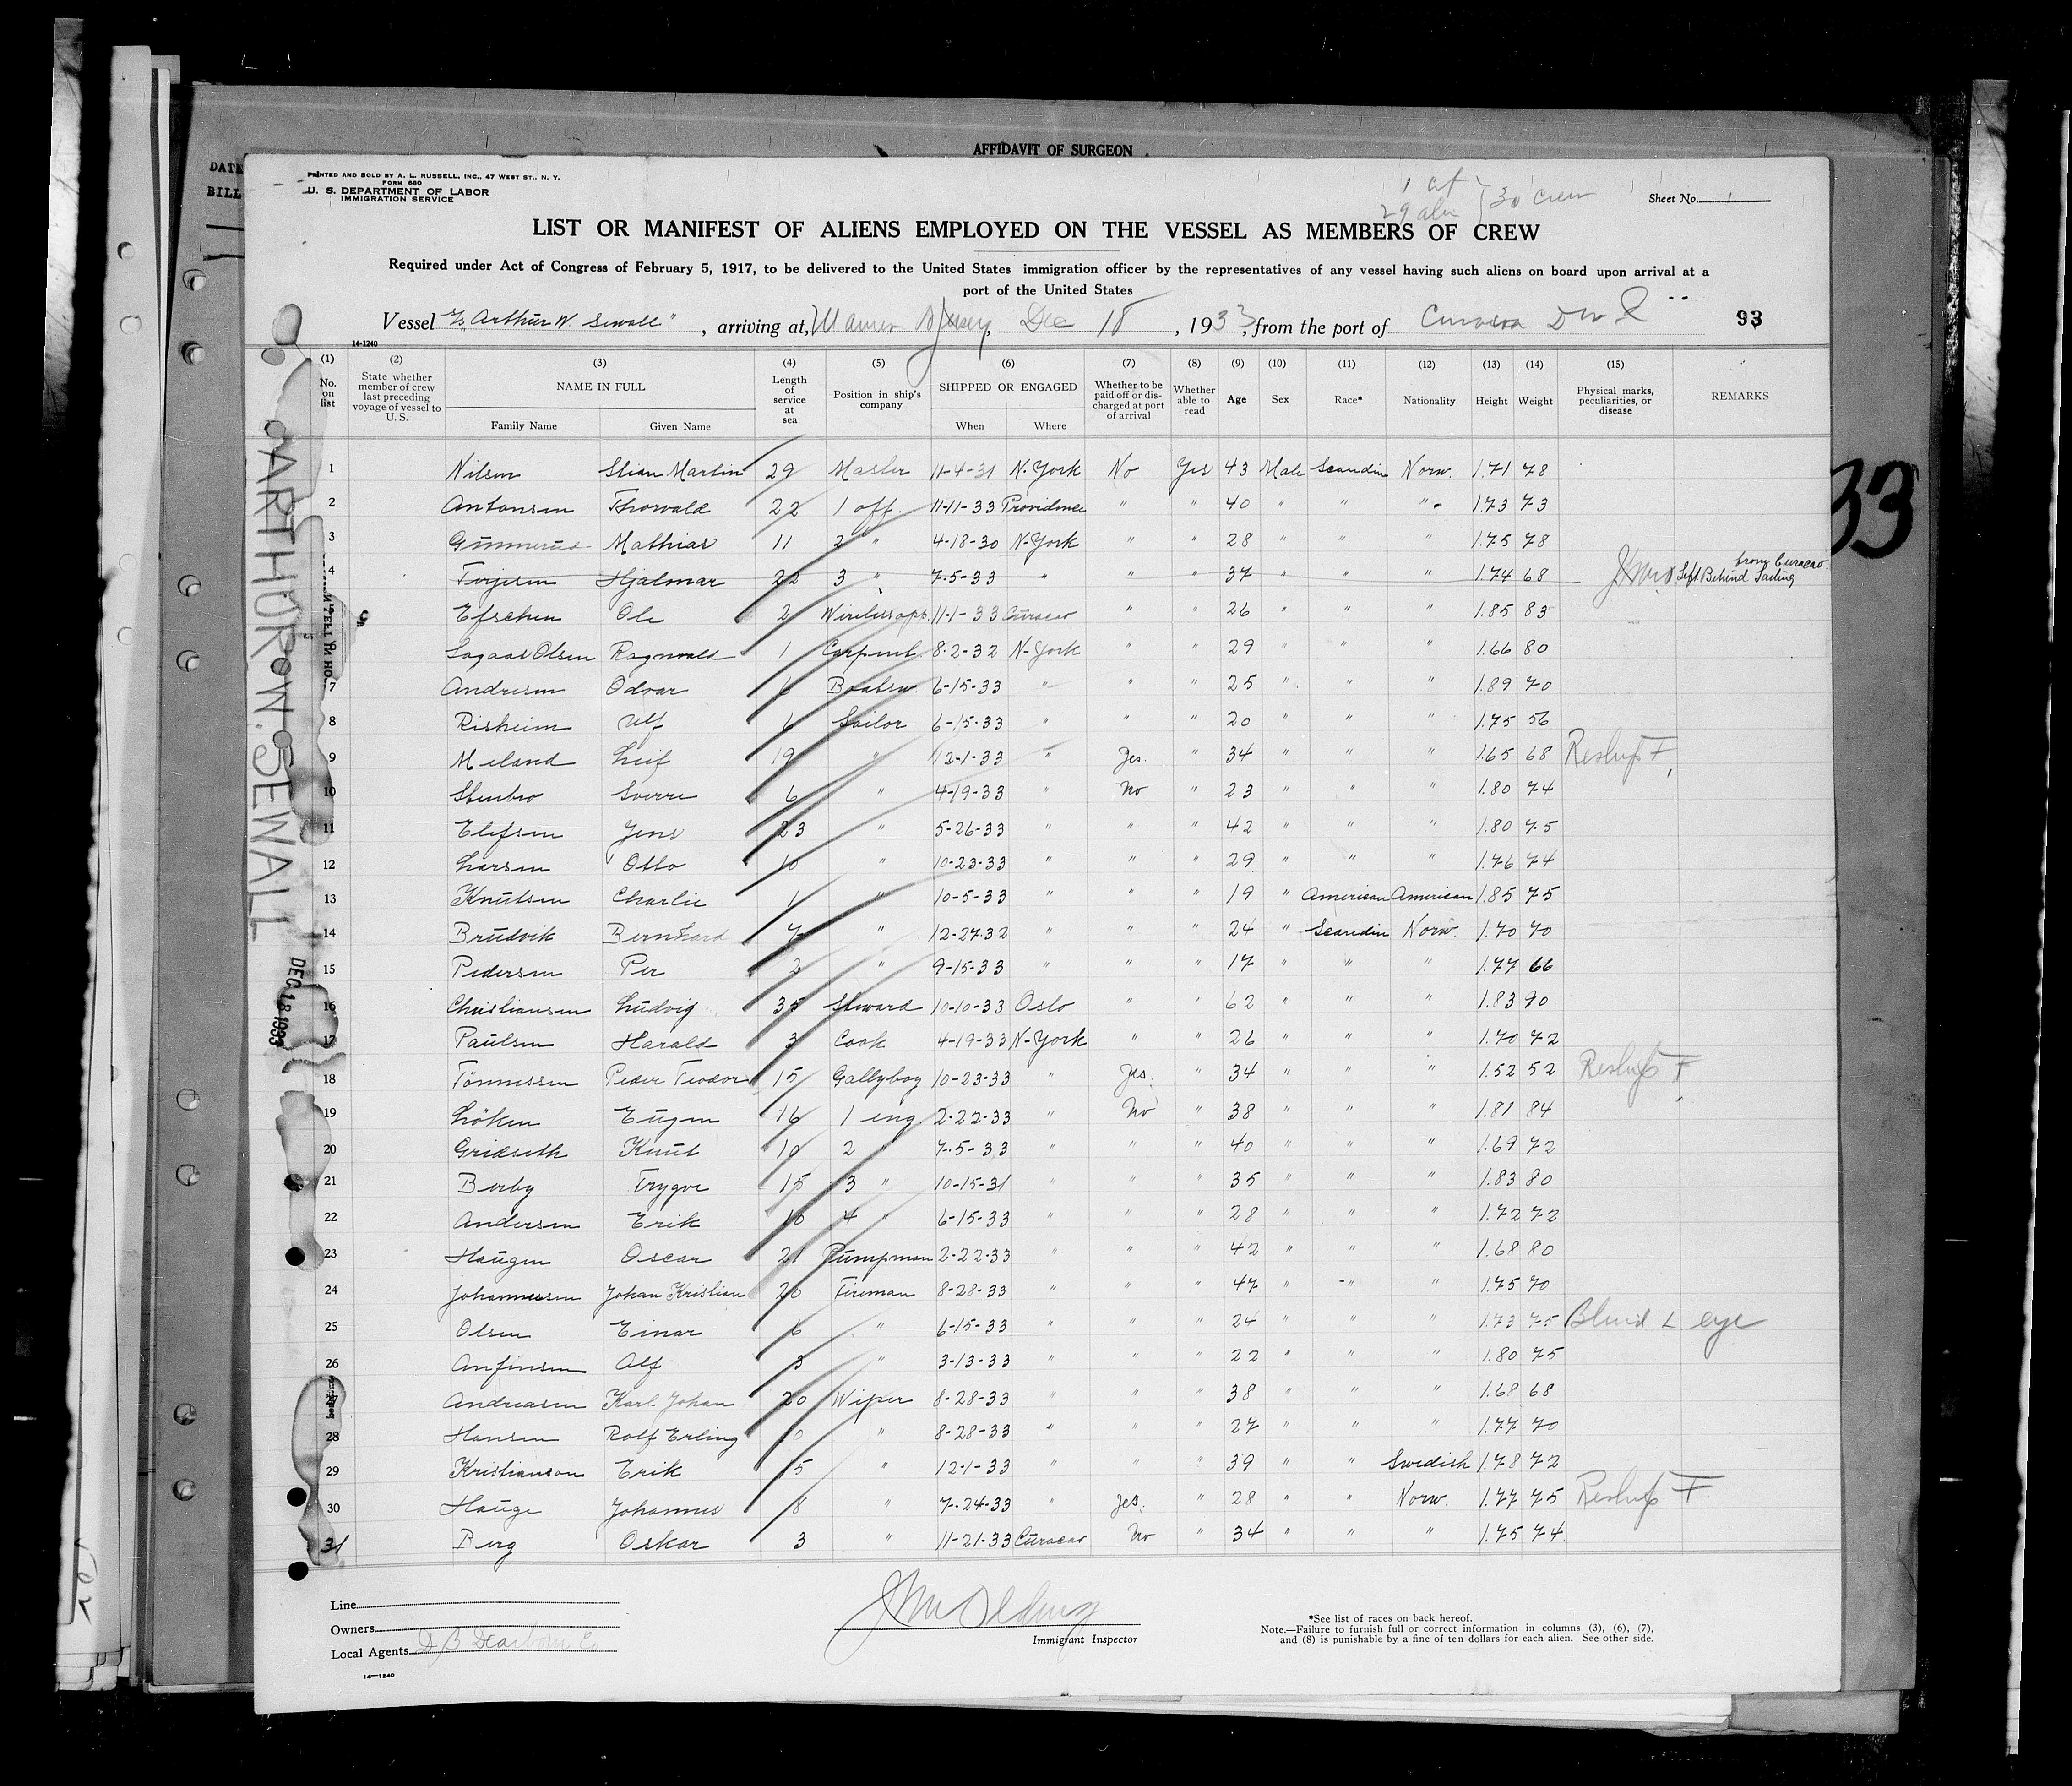 AFFIDAVIT OF SURGEON
DATE
BILL
PRINTED AND SOLD BY A. L. RUSSELL, INC., 47 WEST ST., N. Y.
FORM 680
U. S. DEPARTMENT OF LABOR
IMMIGRATION SERVICE
30 crew
Sheet No. 1
LIST OR MANIFEST OF ALIENS EMPLOYED ON THE VESSEL AS MEMBERS OF CREW
Required under Act of Congress of February 5, 1917, to be delivered to the United States immigration officer by the representatives of any vessel having such aliens on board upon arrival at a
port of the United States
Vessel "Arthur W. Sewall", arriving at, Dec 18, 1933, from the port of
93
14-1240
(1) (2) (3) (4) (5) (6) (7) (8) (9) (10) (11) (12) (13) (14) (15)
No. on list
State whether member of crew last preceding voyage of vessel to U. S.
NAME IN FULL
Family Name Given Name
Length of service at sea
Position in ship's company
SHIPPED OR ENGAGED
When Where
Whether to be paid off or discharged at port of arrival
Whether able to read
Age Sex Race* Nationality Height Weight
Physical marks, peculiarities, or disease
REMARKS
1 Nilsen Stian Martin 29 Master 11-4-31 N-York No Yes 43 Male Scandin Norw. 1.71 78
2 Antonsen Thorvald 22 1 off. 11-11-33 Providence " " 40 " " " 1.73 73
3 Gunnerud Mathias 11 2 " 4-18-30 N-York " " 28 " " " 1.75 78
4 Terjesen Hjalmar 22 3 " 7-5-33 " " " 37 " " " 1.74 68 Left Behind Sailing from Curacao
5 Ole 2 11-1-33 Curacao " " 26 " " " 1.85 83
6 Olsen Ragnvald 1 Carpent. 8-2-32 N-York " " 29 " " " 1.66 80
7 Andresen Odvar 6 Boatsw. 6-15-33 " " " 25 " " " 1.89 70
8 Risheim Ulf 6 Sailor 6-15-33 " " " 20 " " " 1.75 56
9 Meland Leif 19 " 12-1-33 " Yes. " 34 " " " 1.65 68 Reship F
10 Stenbro Sverre 6 " 4-19-33 " No " 23 " " " 1.80 74
11 Elefsen Jens 23 " 5-26-33 " " " 42 " " " 1.80 75
12 Larsen Otto 10 " 10-23-33 " " " 29 " " " 1.76 74
13 Knutsen Charlie 1 " 10-5-33 " " " 19 " American American 1.85 75
14 Brudvik Bernhard 7 " 12-27-32 " " " 24 " Scandin Norw. 1.70 70
15 Pedersen Per 2 " 9-15-33 " " " 17 " " " 1.77 66
16 Christiansen Ludvig 35 Steward 10-10-33 Oslo " " 62 " " " 1.83 90
17 Paulsen Harald 3 Cook 4-19-33 N-York " " 26 " " " 1.70 72
18 Tönnessen Peder Teodor 15 Gallyboy 10-23-33 " Yes. " 34 " " " 1.52 52 Reship F
19 Löken Eugen 16 1 eng. 2-22-33 " No " 38 " " " 1.81 84
20 Gridseth Knut 10 2 " 7-5-33 " " " 40 " " " 1.69 72
21 Berby Trygve 15 3 " 10-15-31 " " " 35 " " " 1.83 80
22 Andersen Erik 10 4 " 6-15-33 " " " 28 " " " 1.72 72
23 Haugen Oscar 21 Pumpman 2-22-33 " " " 42 " " " 1.68 80
24 Johannessen Johan Kristian 20 Fireman 8-28-33 " " " 47 " " " 1.75 70
25 Olsen Einar 6 " 6-15-33 " " " 24 " " " 1.73 75 Blind L eye
26 Anfinsen Alf 3 " 3-13-33 " " " 22 " " " 1.80 75
27 Andreasen Karl Johan 20 Wiper 8-28-33 " " " 38 " " " 1.68 68
28 Hansen Rolf Erling 0 " 8-28-33 " " " 27 " " " 1.77 70
29 Kristianson Erik 15 " 12-1-33 " " " 39 " " Swedish 1.78 72
30 Hauge Johannes 8 " 7-24-33 " Yes. " 28 " " Norw. 1.77 75 Reship F
31 Berg Oskar 3 " 11-21-33 Curacao No " 34 " " " 1.75 74
ARTHUR W. SEWALL
DEC 18 1933
33
Line
Owners
Local Agents
14-1240
Immigrant Inspector
*See list of races on back hereof.
Note.—Failure to furnish full or correct information in columns (3), (6), (7),
and (8) is punishable by a fine of ten dollars for each alien. See other side.